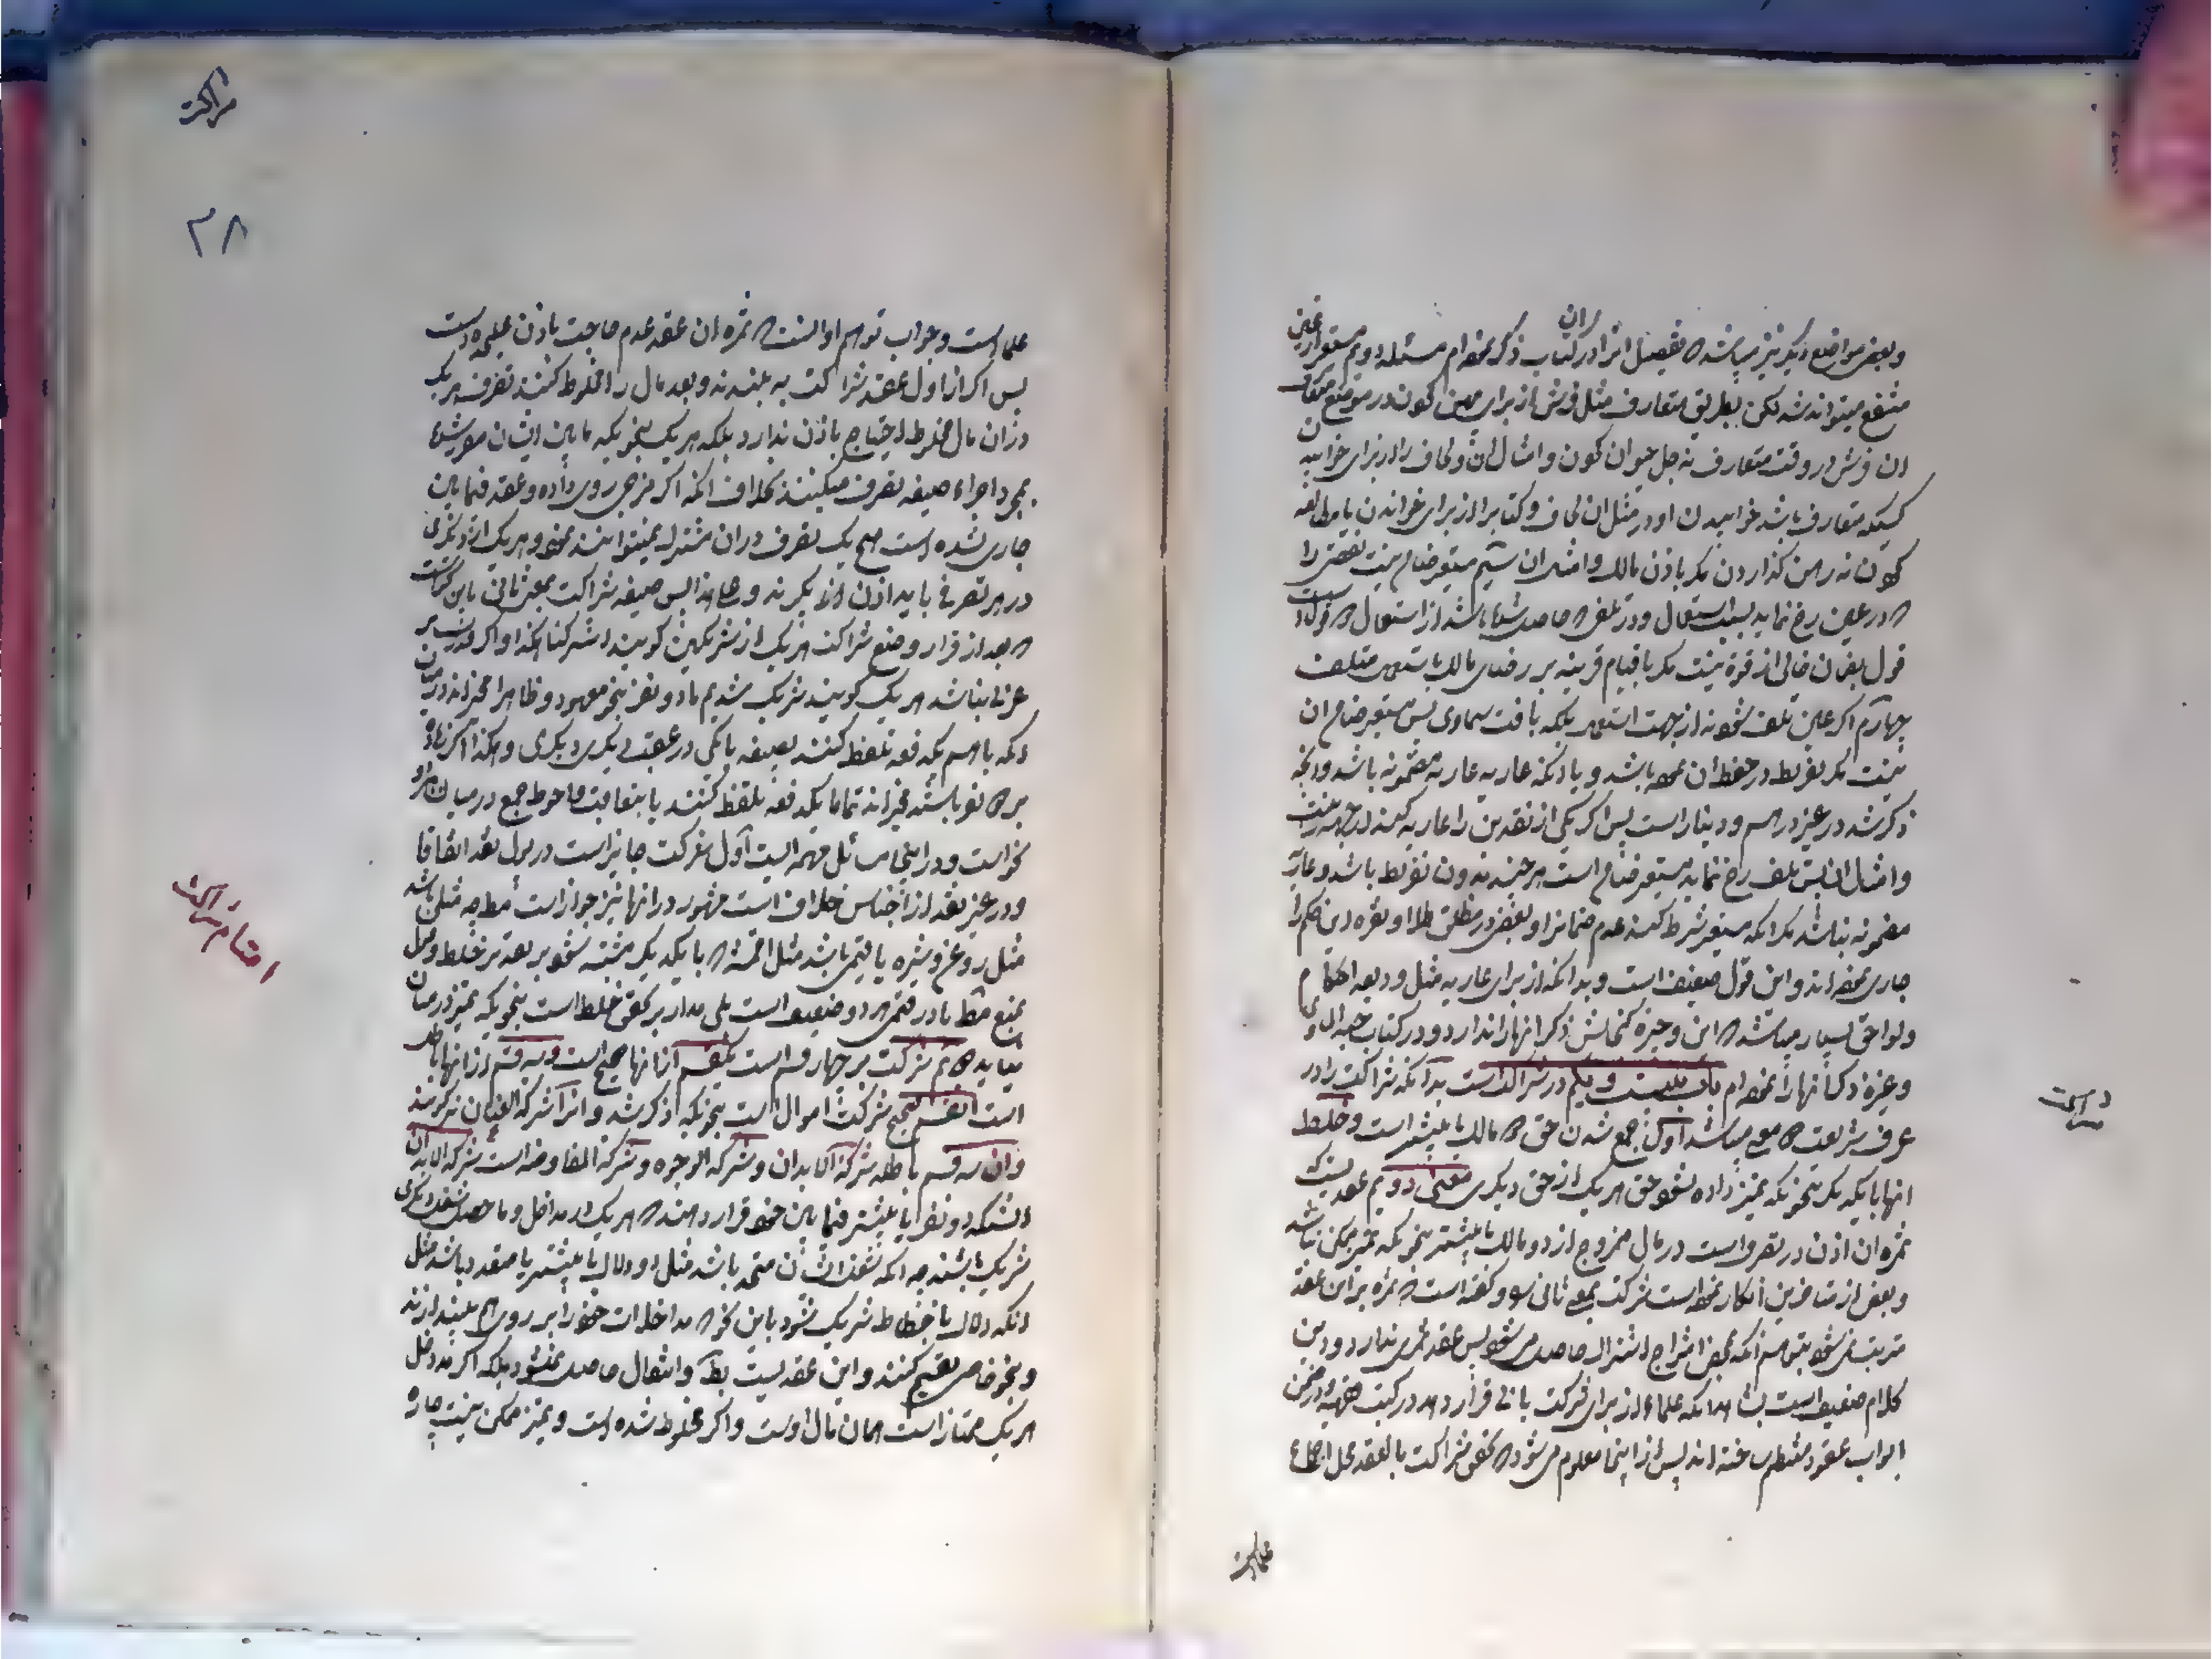 و بعضی مواضع دیگر نیز میباشد که تفصیل انرا در کتاب ذکر نموده‌ام مسئله دویم مستعیر از عین
منتفع میتواند شد لکن بطریق متعارف مثل فرش از برای پهن کردن در موضع متعارف
ان فرش در وقت متعارف نه جل حیوان کردن و امثال ان و لحاف را از برای خوابیدن
کسیکه متعارف باشد خوابیدن او در مثل ان لحاف و کتاب را از برای خواندن یا مطالعه
کردن نه رهن گذاردن مگر باذن مالک و امثال ان سیم مستعیر ضامن نیست نقصی را
که در عین رخ نماید بسبب استعمال و در تلفی که حاصل شده باشد از استعمال دو قول است
قول بضمان خالی از قوة نیست مگر با قیام قرینه بر رضای مالک باستعمال متلف
چهارم اگر عین تلف شود نه از جهت استعمال بلکه بافت سماوی پس مستعیر ضامن ان
نیست مگر تفریط در حفظ ان نموده باشد و یا انکه عاریه عاریه مضمونه باشد و انچه
ذکر شد در غیر درهم و دینار است پس اگر یکی از نقدین را عاریه کند از جهة زینت
و امثال ان پس تلف رخ نماید مستعیر ضامن است هر چند بدون تفریط باشد و عاریه
مضمونه نباشد مگر انکه مستعیر شرط کند عدم ضمانرا و بعضی در مطلق طلا و نقره این حکم را
جاری نموده‌اند و این قول ضعیف است و بدانکه از برای عاریه مثل ودیعه احکام
و لواحق بسیار میباشد که این وجیزه گنجایش ذکر انها را ندارد و در کتاب
و غیره ذکر انها را نموده‌ام باب بیست و یکم در شراکت است بدانکه شراکت را در
عرف شریعت دو معنی میباشد اول جمع شدن حق دو مالک یا بیشتر است و خلط
انها با یکدیگر بنحویکه تمییز داده نشود حق هر یک از حق دیگری معنی دویم عقدیست که
ثمره ان اذن در تصرف است در مال ممزوج از دو مالک یا بیشتر بنحویکه تمیز ممکن نباشد
و بعض از متاخرین انکار نموده است شرکت بمعنی ثانی را و گفته است که ثمره بر این عقد
مترتب نمی‌شود بتوهم انکه بمحض امتزاج اشتراک حاصل می‌شود پس عقد ثمری ندارد و این
کلام ضعیف است بشهادت انکه علماء از برای شرکت بابی قرار داده در کتب فقهیه و در ضمن
ابواب عقود منتظم ساخته‌اند پس از اینجا معلوم می‌شود که تحقق شراکت بالعقد محل اجماع
علماء است و جواب توهم او انست که ثمره ان عقد عدم حاجت باذن علیحده است
پس اگر از اول عقد شراکت به بندند و بعد مال را مخلوط کنند تصرف هر یک
در ان مال مخلوط احتیاج باذن ندارد بلکه هر یک بنحویکه مابین ایشان مقرر شده
بمجرد اجراء صیغه تصرف میکنند بخلاف انکه اگر مزجی روی داده و عقد فیمابین
جاری نشده است هیچ یک تصرف در ان مشترک نمیتوانند نمود و هر یک از دیگری
در هر تصرفی باید اذن اخذ بگیرند و علی هذا پس صیغه شراکت بمعنی ثانی باین نحو است
که بعد از قرار وضع شراکت هر یک از شریکین گویند اشترکنا هکذا و اگر
عربی نباشد هر یک گویند شریک شدیم ما دو نفر بنحو معهود و ظاهرا مخیرند در میان
انکه با هم یکدفعه تلفظ کنند بصیغه یا یکی در عقب دیگری و هکذا اگر زیاده
بر دو نفر باشند مخیرند تماما یکدفعه تلفظ کنند یا بتعاقب و احوط جمع در میان هر دو
نحو است و در اینجا مسائل مهمه ایست اول شرکت جایز است در پول نقد اتفاقا
و در غیر نقد از اجناس خلاف است مشهور در انها نیز جواز است مط چه مثلی باشد
مثل روغن و شیره یا قیمی باشد مثل اقمشه که با یکدیگر مشتبه شود بر بعد بر خلط و قول
بمنع مط یا در قیمی هر دو ضعیف است بلی مدار بر تحقق خلط است بنحویکه تمیز در میان
نیاید دویم شرکت بر چهار قسم است یکقسم از انها صحیح است و سه قسم از انها باطل
است انقسم صحیح شرکت اموال است بنحویکه ذکر شد و انرا شرکة العنان نیز گویند
و ان سه قسم باطله شرکة الابدان و شرکة الوجوه و شرکة المفاوضه است شرکة الابدان
انستکه دو نفر یا بیشتر فیمابین خود قرار دهند که هر یک در مداخل و ماحصل شغل دیگری
شریک باشند چه انکه شغل ایشان متحد باشد مثل دو دلال یا بیشتر یا متعدد باشد مثل
انکه دلال با خیاط شریک شود باین نحو که مداخلات خود را بر روی هم بیندازند
و بنحو خاص تقسیم کنند و این عقدیست بط و انتقال حاصل نمیشود بلکه اگر مدخل
هر یک ممتاز است همان مال اوست و اگر مخلوط شده است و تمیز ممکن نیست چاره
شراکت
۳۸
اقسام شراکت
در شراکت
علماء است